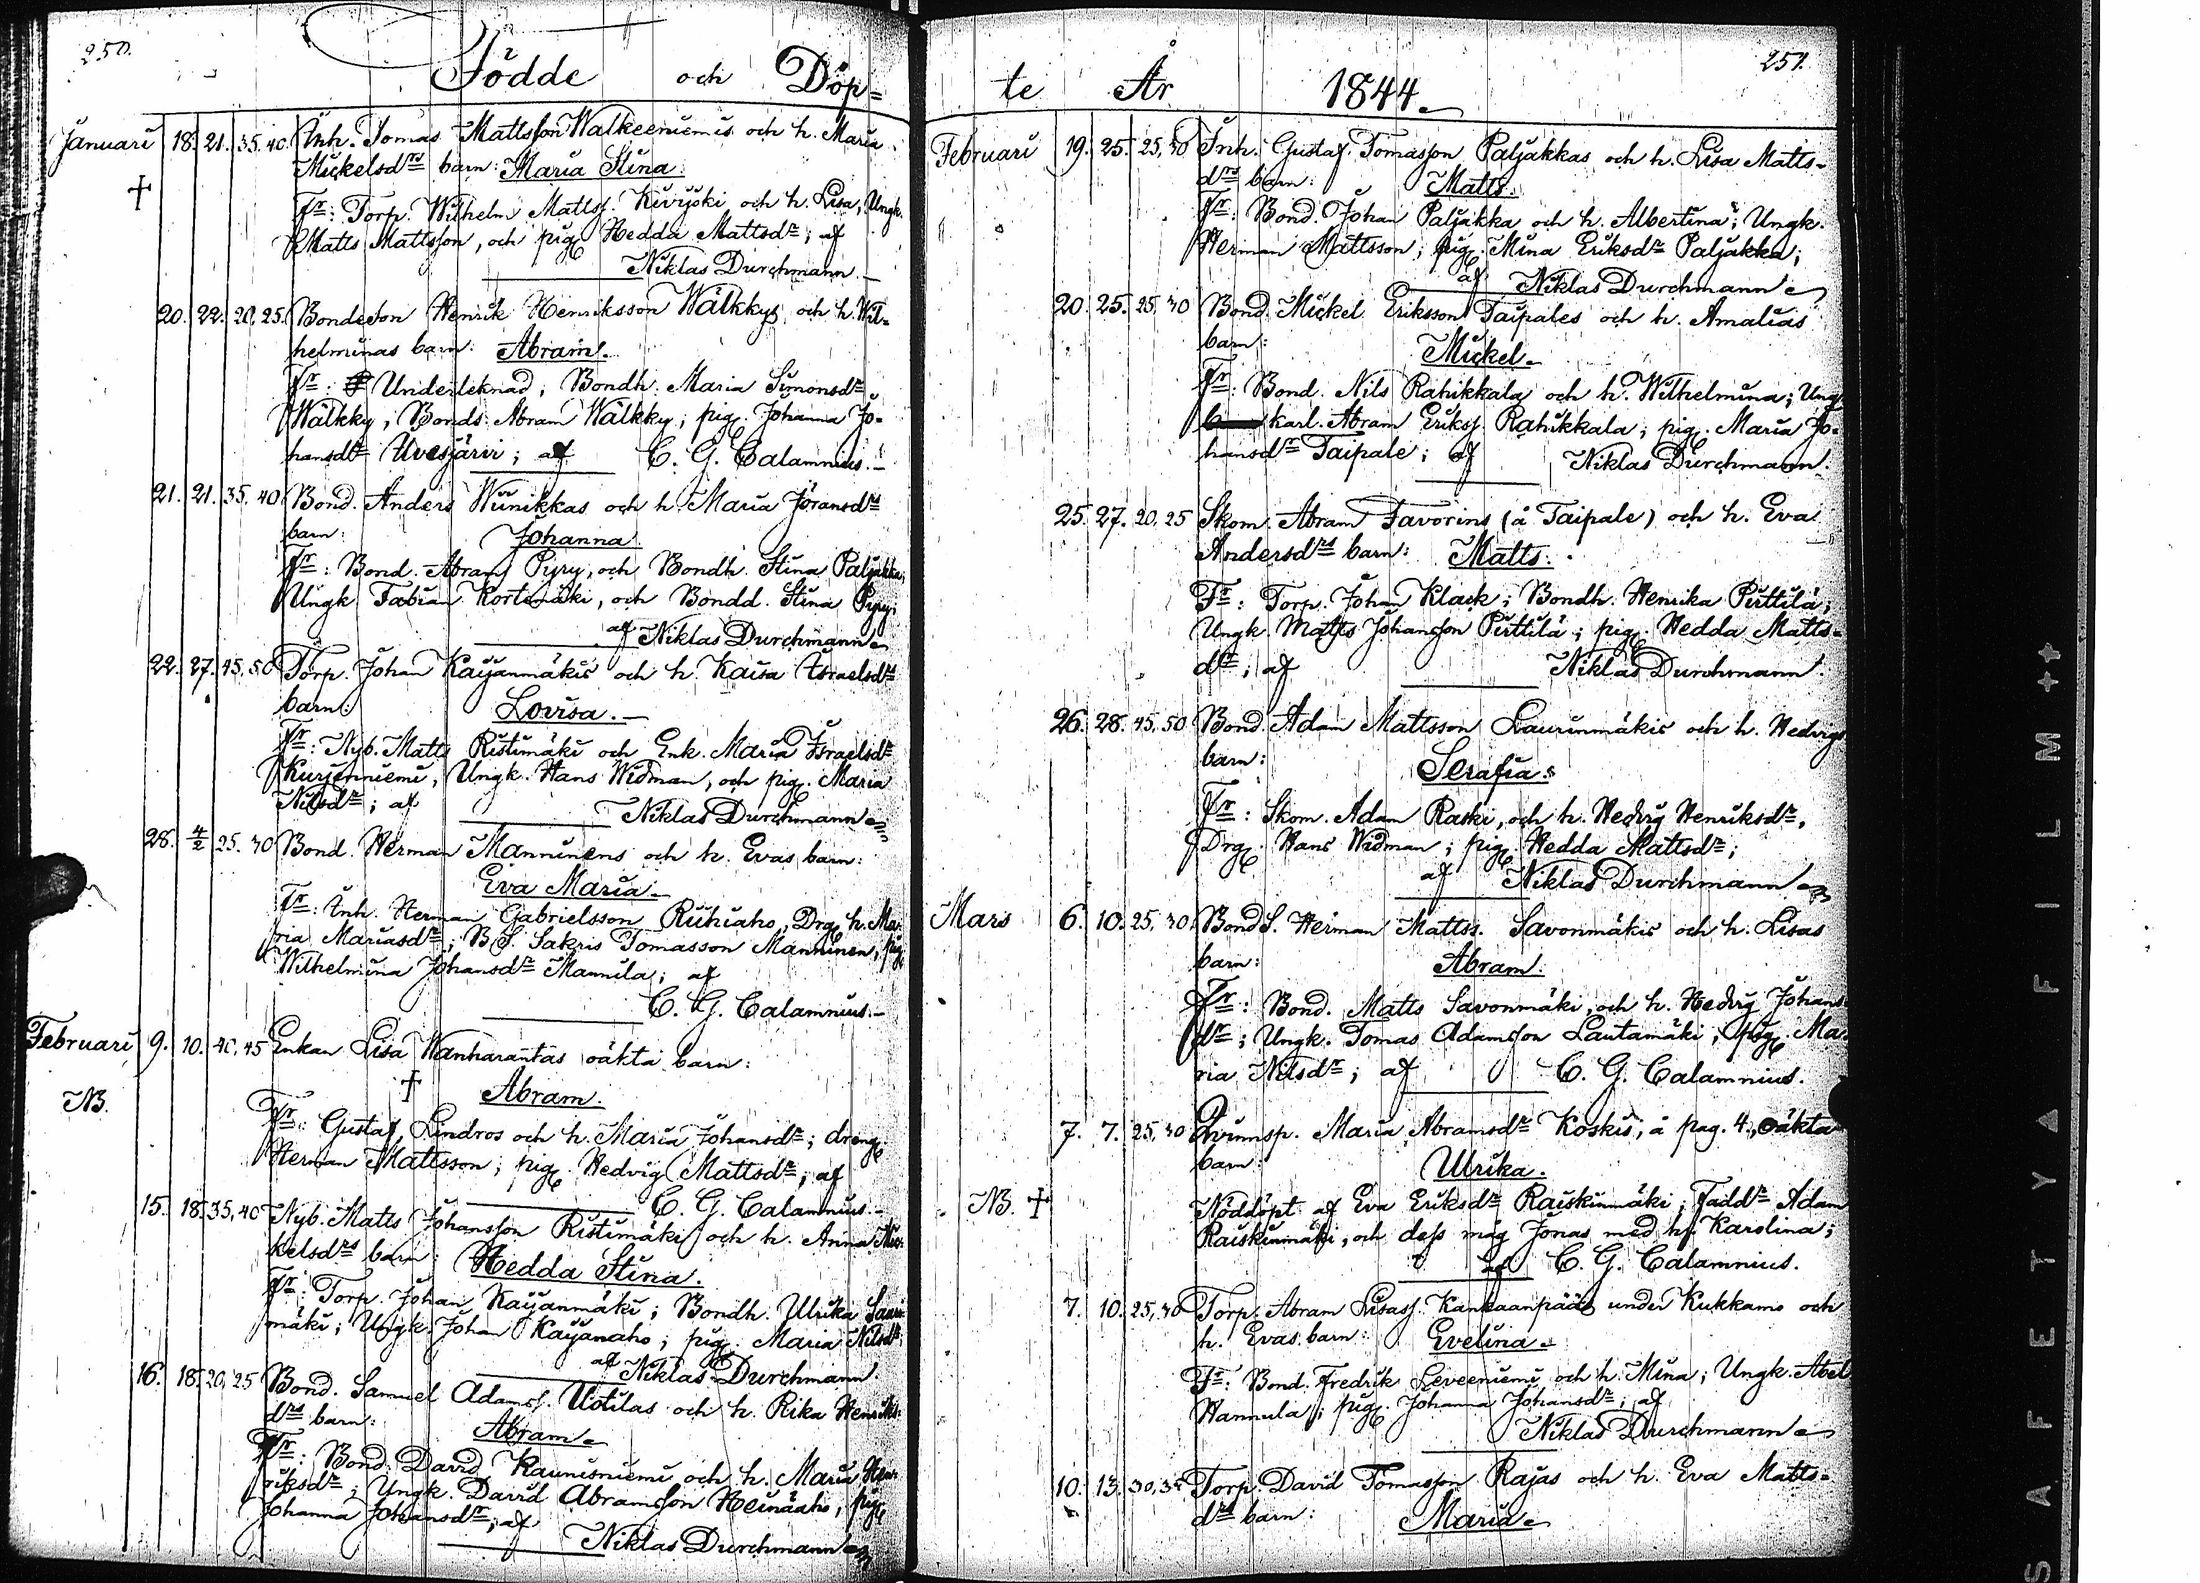 250.
Födde och Döp=
Januari 18. 21. 35. 40. Inh. Tomas Mattsson Walkeeniemis och h. Maria
Mickelsdrs barn: Maria Stina.
Fr: Torp. Wilhelm Mattss. Kivijoki och h. Lisa, Ungk.
Matts Mattsson, och pig. Hedda Mattsdr; af
Niklas Durchmann.
20. 22. 20, 25. Bondeson Henrik Henriksson Wälkkys och h. Wil=
helminas barn: Abram.
Fr: Underteknad, Bondh. Maria Simonsdr
Wälkky, Bonds. Abram Wälkky, pig. Johanna Jo=
hansdr Uvesjärvi; af C. G. Calamnius.
21. 21. 35, 40 Bond. Anders Wiinikkas och h. Maria Jöransdrs
barn: Johanna.
Fr: Bond. Abram Pyry, och Bondh. Stina Paljakka;
Ungk Fabian Kortemäki, och Bondd. Stina Pyry;
af Niklas Durchmann
22. 27. 45, 50 Torp. Johan Kaijanmäkis och h. Kaisa Israelsdrs
barn: Lovisa.
Fr: Nyb. Matts Ristimäki och Enk. Maria Israelsdr
Kurjenniemi, Ungk. Hans Widman, och pig. Maria
Nilsdr; af Niklas Durchmann
28. 4/2 25. 30 Bond. Herman Manninens och h. Evas barn:
Eva Maria
Fr: Inh. Herman Gabrielsson Riihiaho, Drg. h. Ma=
ria Mariasdr; B.S. Sakris Tomasson Manninen, pig.
Wilhelmina Johansdr Mannila; af
C. G. Calamnius.
Februari 9. 10. 40, 45 Enkan Lisa Wanharantas oäkta barn:
NB. Abram.
Fr: Gustaf Lindros och h. Maria Johansdr; dreng.
Herman Mattsson; pig. Hedvig Mattsdr; af
C. G. Calamnius.
15. 18. 35, 40 Nyb. Matts Johansson Ristimäki och h. Anna Mic=
kelsdrs barn: Hedda Stina.
Fr: Torp. Johan Kaijanmäki; Bondh. Ulrika
mäki; Ungk. Johan Kaijanaho; pig. Maria Nilsdr;
af Niklas Durchmann
16. 18. 20, 25 Bond. Samuel Adamss. Uotilas och h. Rika Henriks=
drs barn: Abram
Fr: Bond. David Kaunisniemi och h. Maria Hen=
riksdr; Ungk. David Abramsson Heinäaho, pig.
Johanna Johansdr; af
Niklas Durchmann
251.
te År 1844.
Februari 19. 25. 25, 30 Inh. Gustaf Tomasson Paljakkas och h. Lisa Matts=
drs barn: Matts.
Fr: Bond. Johan Paljakka och h. Albertina; Ungk.
Herman Mattsson; pig. Mina Eriksdr Paljakka;
af Niklas Durchmann
20. 25. 25, 30 Bond. Mickel Eriksson Taipales och h. Amalias
barn: Mickel
Fr: Bond. Nils Rahikkala och h. Wilhelmina; Ung
karl. Abram Erikss. Rahikkala; pig. Maria Jo=
hansdr Taipale; af Niklas Durchmann.
25. 27. 20, 25 Skom. Abram Favorins (å Taipale) och h. Eva
Andersdrs barn: Matts.
Fr: Torp. Johan Klack; Bondh. Henrika Pirttilä;
Ungk. Matts Johansson Pirttilä; pig. Hedda Matts=
dr; af Niklas Durchmann.
26. 28. 45, 50 Bond. Adam Mattsson Laurinmäkis och h. Hedvigs
barn: Serafia
Fr: Skom. Adam Raski, och h. Hedvig Henriksdr,
Drg. Hans Widman; pig. Hedda Mattsdr;
af Niklas Durchmann
Mars 6. 10. 25, 30 BondS. Herman Mattss. Savonmäkis och h. Lisas
barn: Abram.
Fr: Bond. Matts Savonmäki, och h. Hedvig Johans
dr; Ungk. Tomas Adamsson Lautamäki, pig. Ma=
ria Nilsdr; af C. G. Calamnius.
7. 7. 25, 30 Qvinnsp. Maria Abramsdr Koskis, å pag. 4, oäkta
barn: Ulrika.
NB. Nöddöpt af Eva Eriksdr Raiskinmäki; Faddr Adam
Raiskinmäki, och dess måg Jonas med h. Karolina;
af C. G. Calamnius.
7. 10. 25, 30 Torp. Abram Lisass. Kankaanpääs under Kukkamo och
h. Evas barn: Evelina
Fr: Bond. Fredrik Leveeniemi och h. Mina; Ungk. Abel
Hannula; pig. Johanna Johansdr; af
Niklas Durchmann
10. 13. 30, 35 Torp. David Tomasson Rajas och h. Eva Matts=
drs barn: Maria
SAFETY A FILM ++